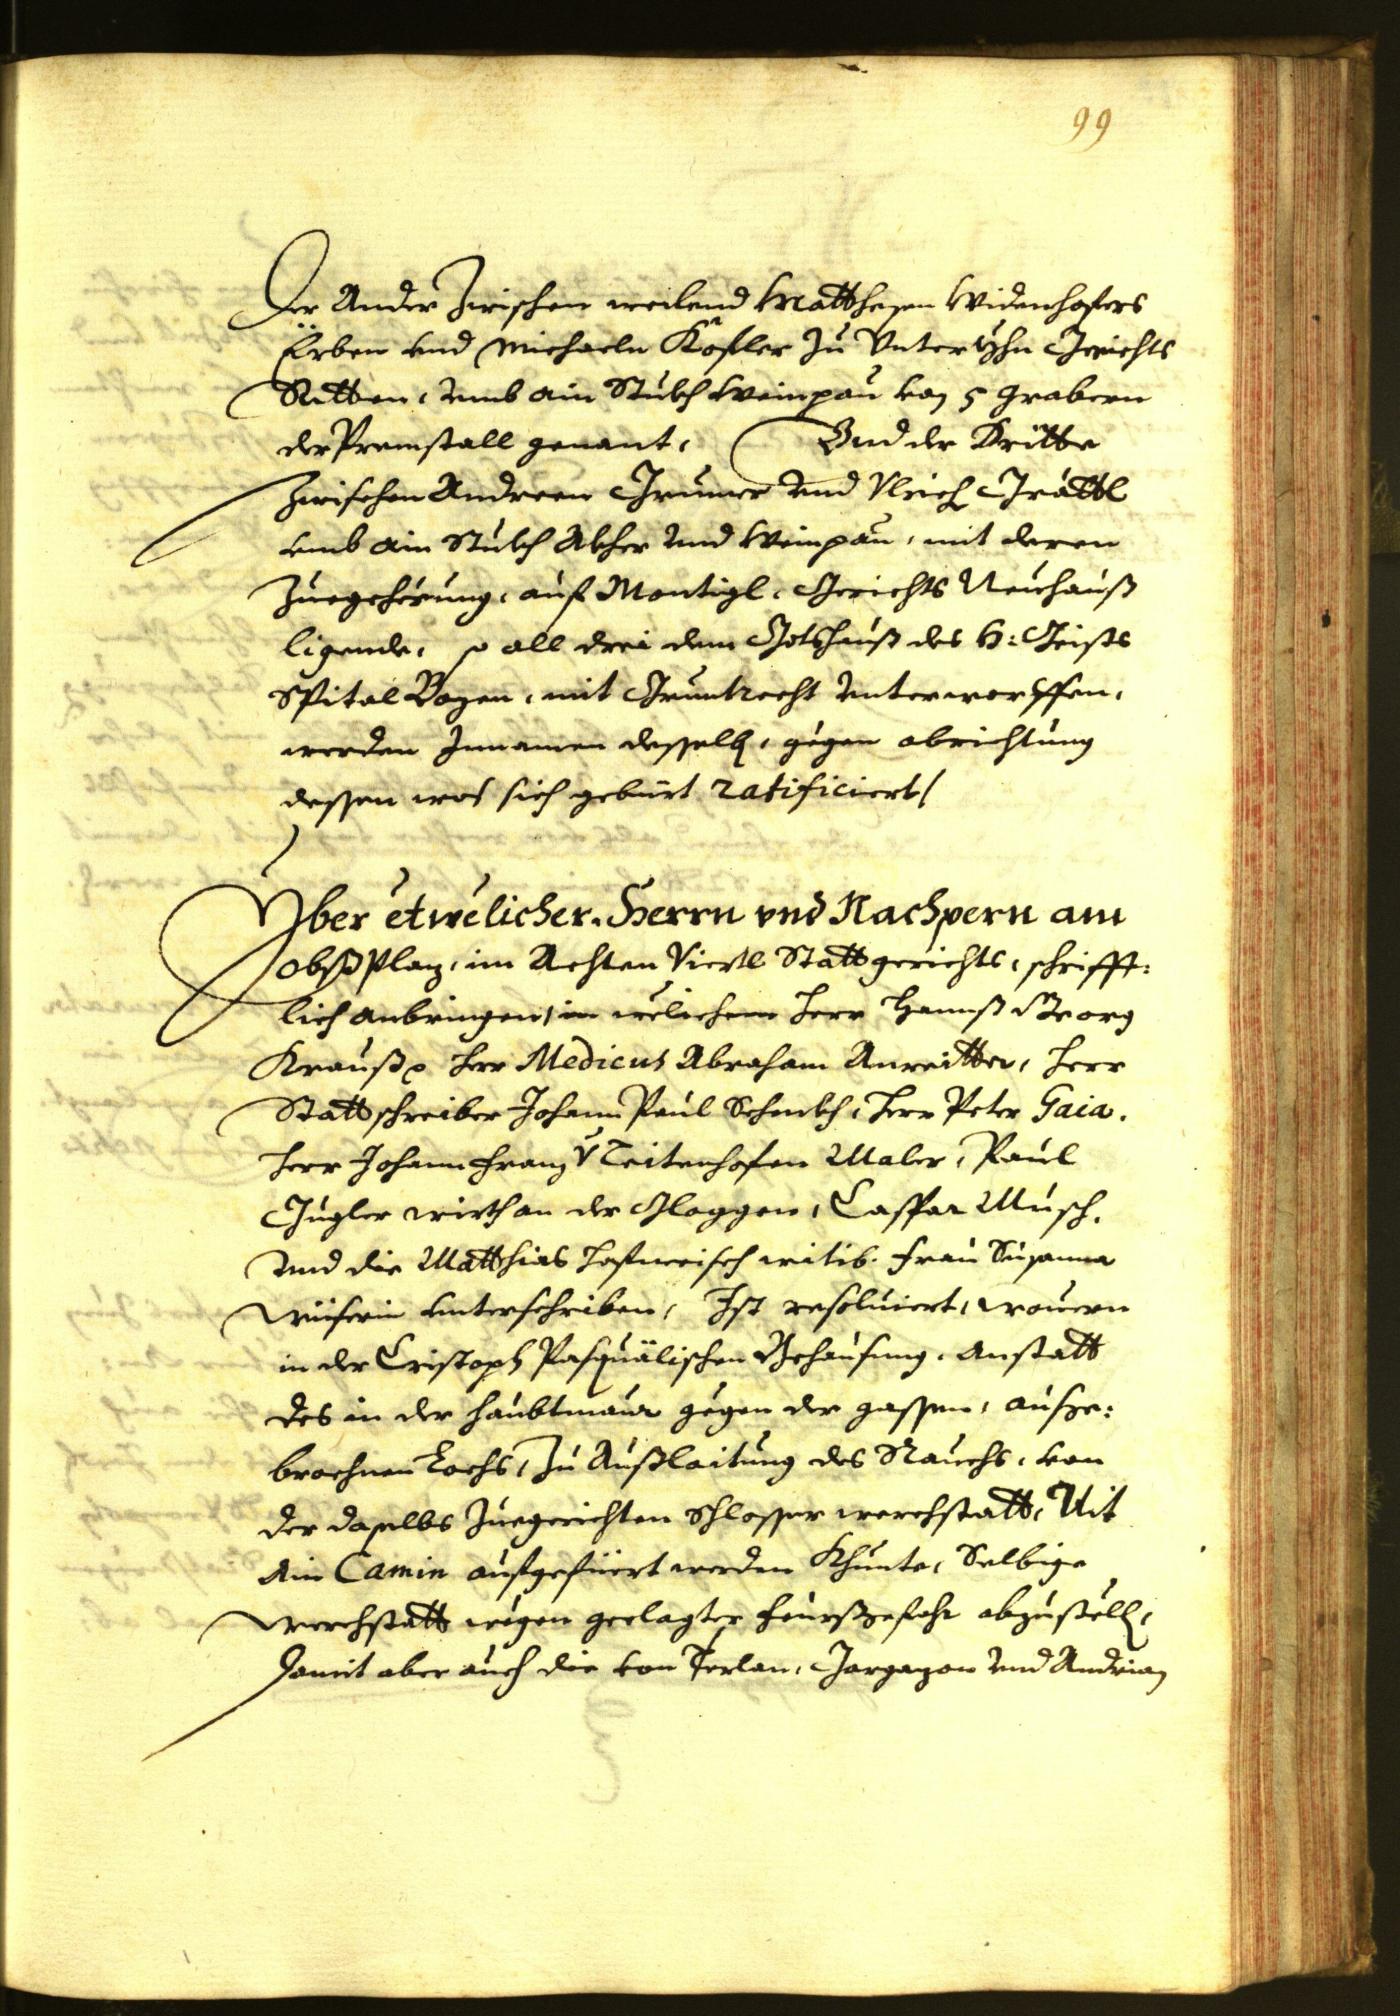 99
Der Ander Zwischen weilend Matthesen Widenhofers
Erben vnd Michaeln Kofler zu Vnter Gerichts
Ritten, vmb ain Stuckh Weinpau von 5 Grabern
der Premstall genant, Vnd der Dritte
Zwischen Andreen Grumer vnd Vlrich Grättl
vmb ain Stuckh Akher vnd Weinpau, mit deren
Zuegehörung, auf Montigl, Gerichts Neuhauß
ligende, so all drei dem Gotshauß des H: Geists
Spital Bozen, mit Gruntrecht vnterworffen,
werden Innamen desselb, gegen abrichtung
dessen was sich gebürt ratificiert/
Yber etwelicher Herrn vnd Nachpern am
obsßPlaz, im Achten Viertl Stattgerichts, schrifft:
lich anbringen, in welichem Herr Hannß Georg
Krauß Herr Medicus Abraham Anreitter, Herr
Stattschreiber Johann Paul Schenkh, Herr Peter Gaia.
Herr Johann Franz v Teitenhofen Maler, Paul
Gugler wirth an der Gloggen, Caspar Musch,
vnd die Matthias witib. Frau Susanna
vnterschriben, Ist resoluiert, wouern
in der Cristoph Pasqualischen Behausung, Anstatt
des in der haubtmaur gegen der gassen, ausge:
brochnen Lochs, zu Außlaitung des Rauchs, von
der daselbs Zuegerichten Schlosser werchstatt, Nit
Ain Camin aufgefüert werden Khunte, Selbige
werchstatt wegen geclagter feursgefahr abzustell,
Damit aber auch die von Terlan, Gargazon vnd Andrian